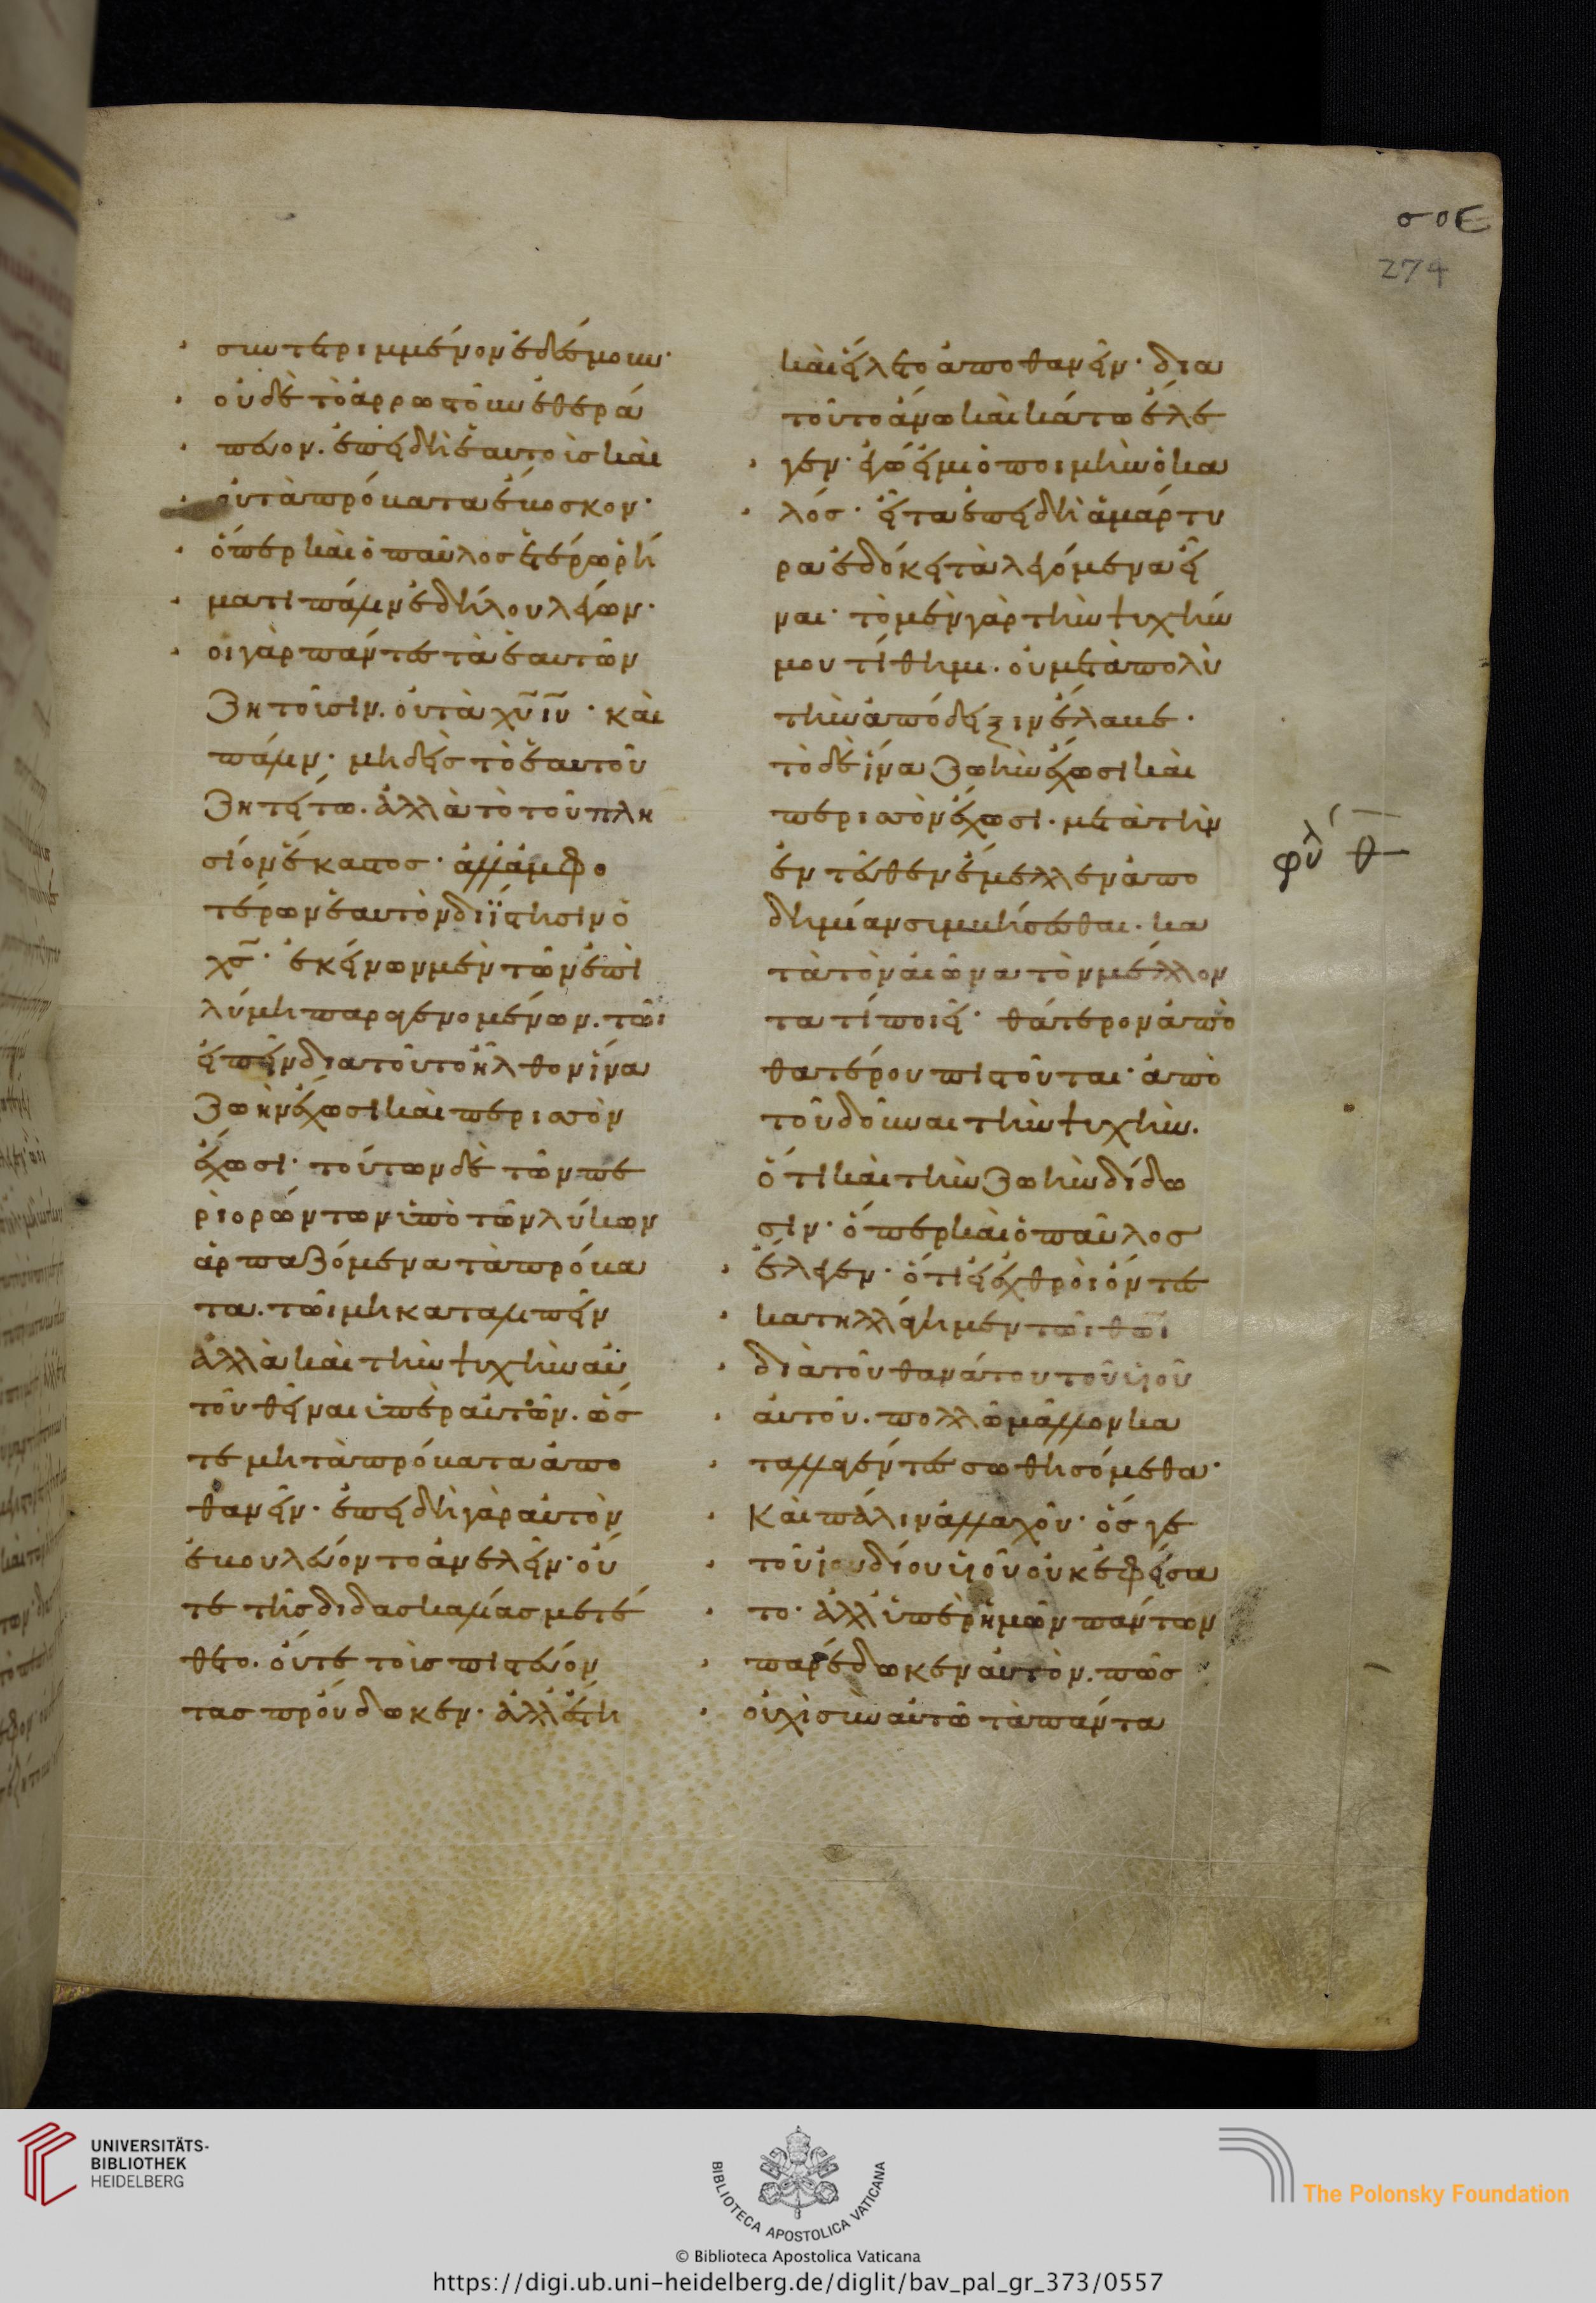 σοε
274
συντετριμμένον ἐδέσμουν·
οὐδὲ τὸ ἄρρωστον ἐθερά
πευον. ἐπειδὴ ἑαυτοὺς καὶ
οὐ τὰ πρόβατα ἔβοσκον·
ὅπερ καὶ ὁ παῦλος ἑτέρω ῥή
ματι πάλιν ἐδήλου λέγων·
οι γὰρ πάντες τὰ ἑαυτῶν
ζητοῦσιν. οὐ τὰ χυ ιυ · καὶ
πάλιν· μηδεὶς τὸ ἑαυτοῦ
ζητείτω. ἀλλὰ τὸ τοῦ πλη
σίον ἕκαστος· ἀλλ ἀμφο
τέρων ἑαυτὸν διΐστησιν ὁ
χς· ἐκείνων μὲν τῶν ἐπὶ
λύμη παραγενομένων. τῶι
εἰπεῖν διατοῦτο ἦλθον ἵνα
ζωὴν ἔχωσι καὶ περισσὸν
ἔχωσι· τούτων δὲ τῶν πε
ριορώντων ὑπὸ τῶν λύκων
ἁρπαζόμενα τὰ πρόβα
τα. τῶι μὴ καταλιπεῖν
ἀλλὰ καὶ τὴν ψυχὴν αὐ
τοῦ θεῖναι ὑπὲρ αὐτῶν. ὥσ
τε μὴ τὰ πρόβατα ἀπο
θανεῖν· ἐπειδὴ γὰρ αὐτὸν
ἐβουλεύοντο ἀνελεῖν· οὔ
τε τῆς διδασκαλίας μετέ
θετο. οὔτε τοὺς πιστεύον
τας προύδωκεν· ἀλλ ἔστη
καὶ εἵλετο ἀποθανεῖν· δια
τοῦτο ἄνω καὶ κάτω ἔλε
γεν· ἐγώ εἰμι ὁ ποιμὴν ὁ κα
λός· εἶτα ἐπειδὴ ἀμάρτυ
ρα ἐδόκει τὰ λεγόμενα εἶ
ναι· τὸ μὲν γὰρ τὴν ψυχήν
μου τίθημι. οὐ μετὰ πολὺ
τὴν ἀπόδειξιν ἔλαβε·
τὸ δὲ ἵνα ζωὴν ἔχωσι καὶ
περισσὸν ἔχωσι. μετὰ τὴν
ἐντεῦθεν ἔμελλεν ἀπο
δημίαν συμβήσεσθαι. κα
τὰ τὸν αἰῶνα τὸν μέλλον
τα τί ποιεῖ· θάτερον ἀπὸ
θατέρου πιστοῦται· ἀπὸ
τοῦ δοῦναι τὴν ψυχὴν.
ὅτι καὶ τὴν ζωὴν δίδω
σιν· ὅπερ καὶ ὁ παῦλος
ἔλεγεν· ὅτι εἰ ἐχθροὶ ὄντες
κατηλλάγημεν τῶι θωι
διὰ τοῦ θανάτου τοῦ υἱοῦ
αὐτοῦ. πολλῶ μᾶλλον κα
ταλλαγέντες σωθησόμεθα·
Καὶ πάλιν ἀλλαχοῦ· ὅς γε
τοῦ ἰδίου υἱοῦ οὐκ ἐφείσα
το· ἀλλ ὑπὲρ ἡμῶν πάντων
παρέδωκεν αὐτὸν. πῶς
οὐχὶ σὺν αὐτῶ τὰ πάντα
φυλ θ
UNIVERSITÄTS-
BIBLIOTHEK
HEIDELBERG
BIBLIOTECA APOSTOLICA VATICANA
The Polonsky Foundation
© Biblioteca Apostolica Vaticana
https://digi.ub.uni-heidelberg.de/diglit/bav_pal_gr_373/0557